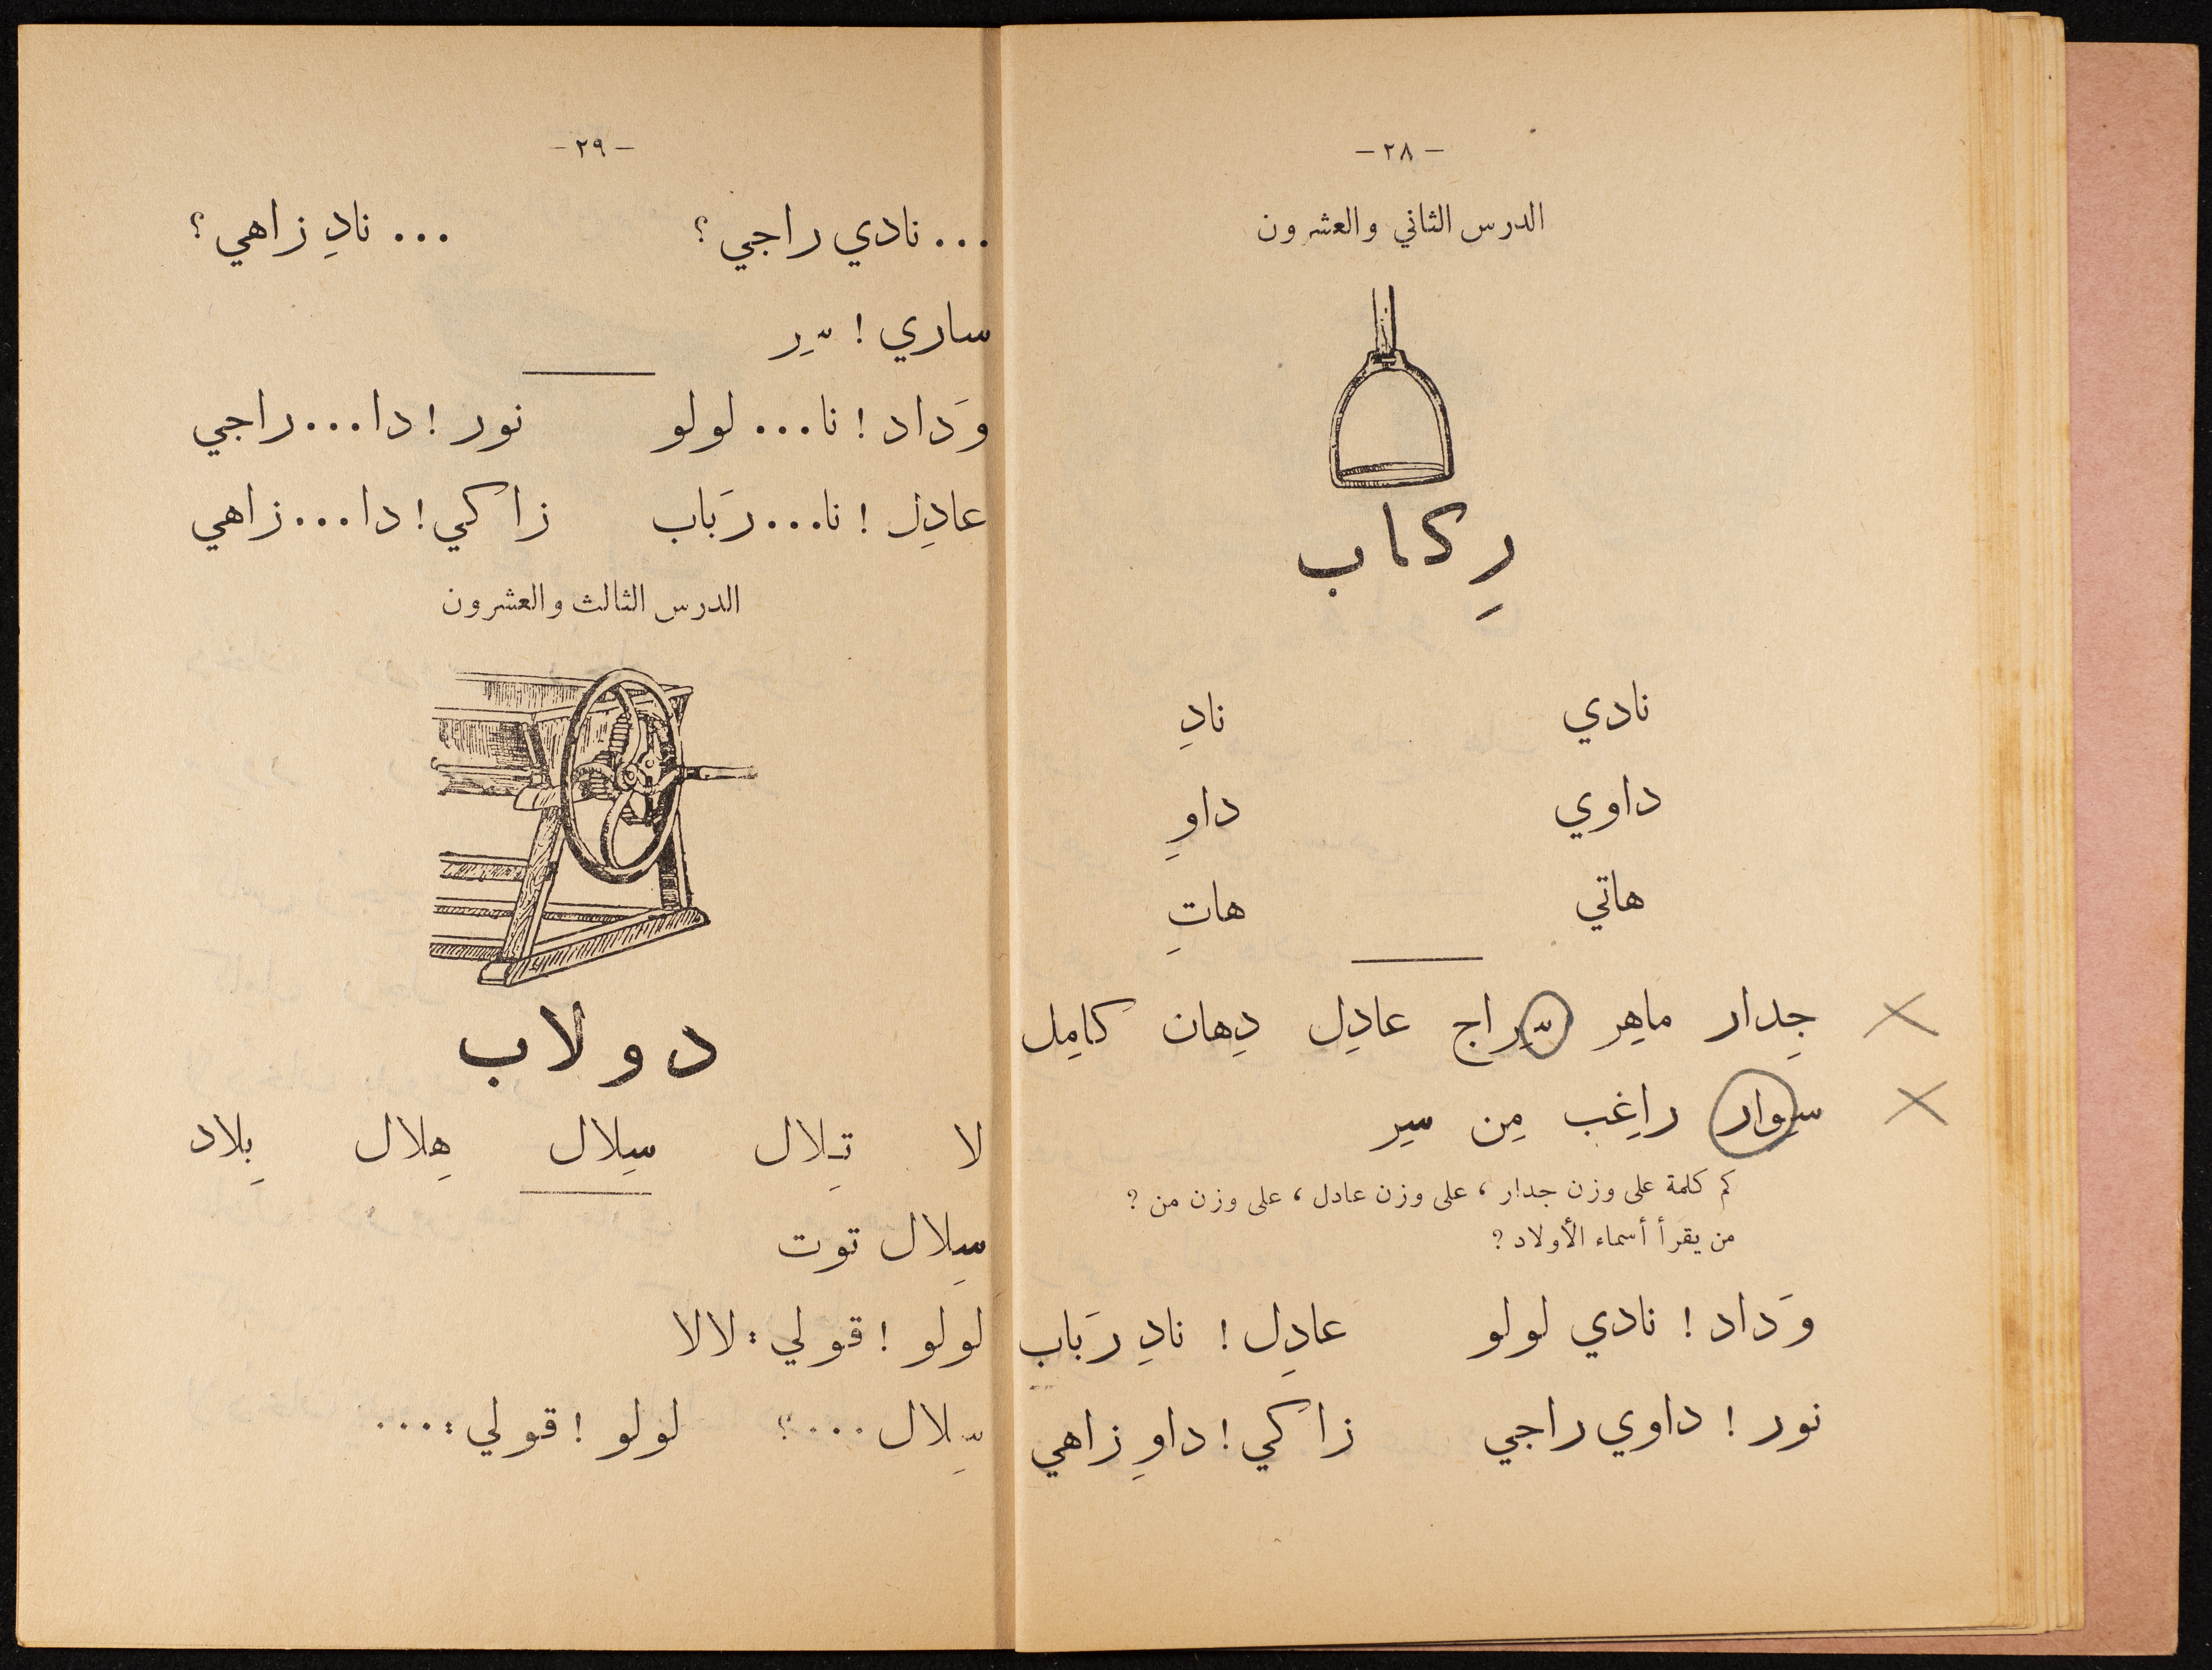 - ٢٨ -
الدرس الثاني والعشرون
رِكاب
نادي نادِ
داوي داوِ
هاتي هاتِ
جِدار ماهِر سِراج عادِل دِهان كامِل
سِوار راغِب مِن سير
كم كلمة على وزن جدار ، على وزن عادل ، على وزن من ؟
من يقرأ أسماء الأولاد ؟
وَداد ! نادي لولو عادِل ! نادِ رَباب
نور ! داوي راجي زاكي ! داوِ زاهي
- ٢٩ -
... نادي راجي ؟ ... نادِ زاهي ؟
ساري ! سِر
وَداد ! نا... لولو نور ! دا... راجي
عادِل ! نا... رَباب زاكي ! دا... زاهي
الدرس الثالث والعشرون
دولاب
لا تِلال سِلال هِلال بِلاد
سِلال توت
لولو ! قولي : لالا
سِلال ...؟ لولو ! قولي : ...